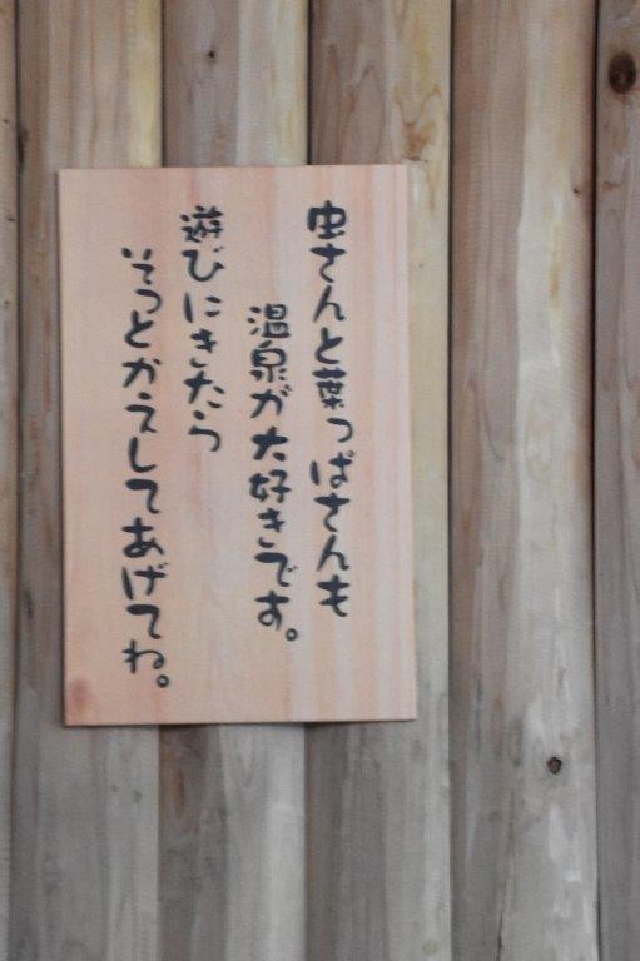 虫さんと葉っぱさんも
温泉が大好きです。
遊びにきたら
そっとかえしてあげてね。